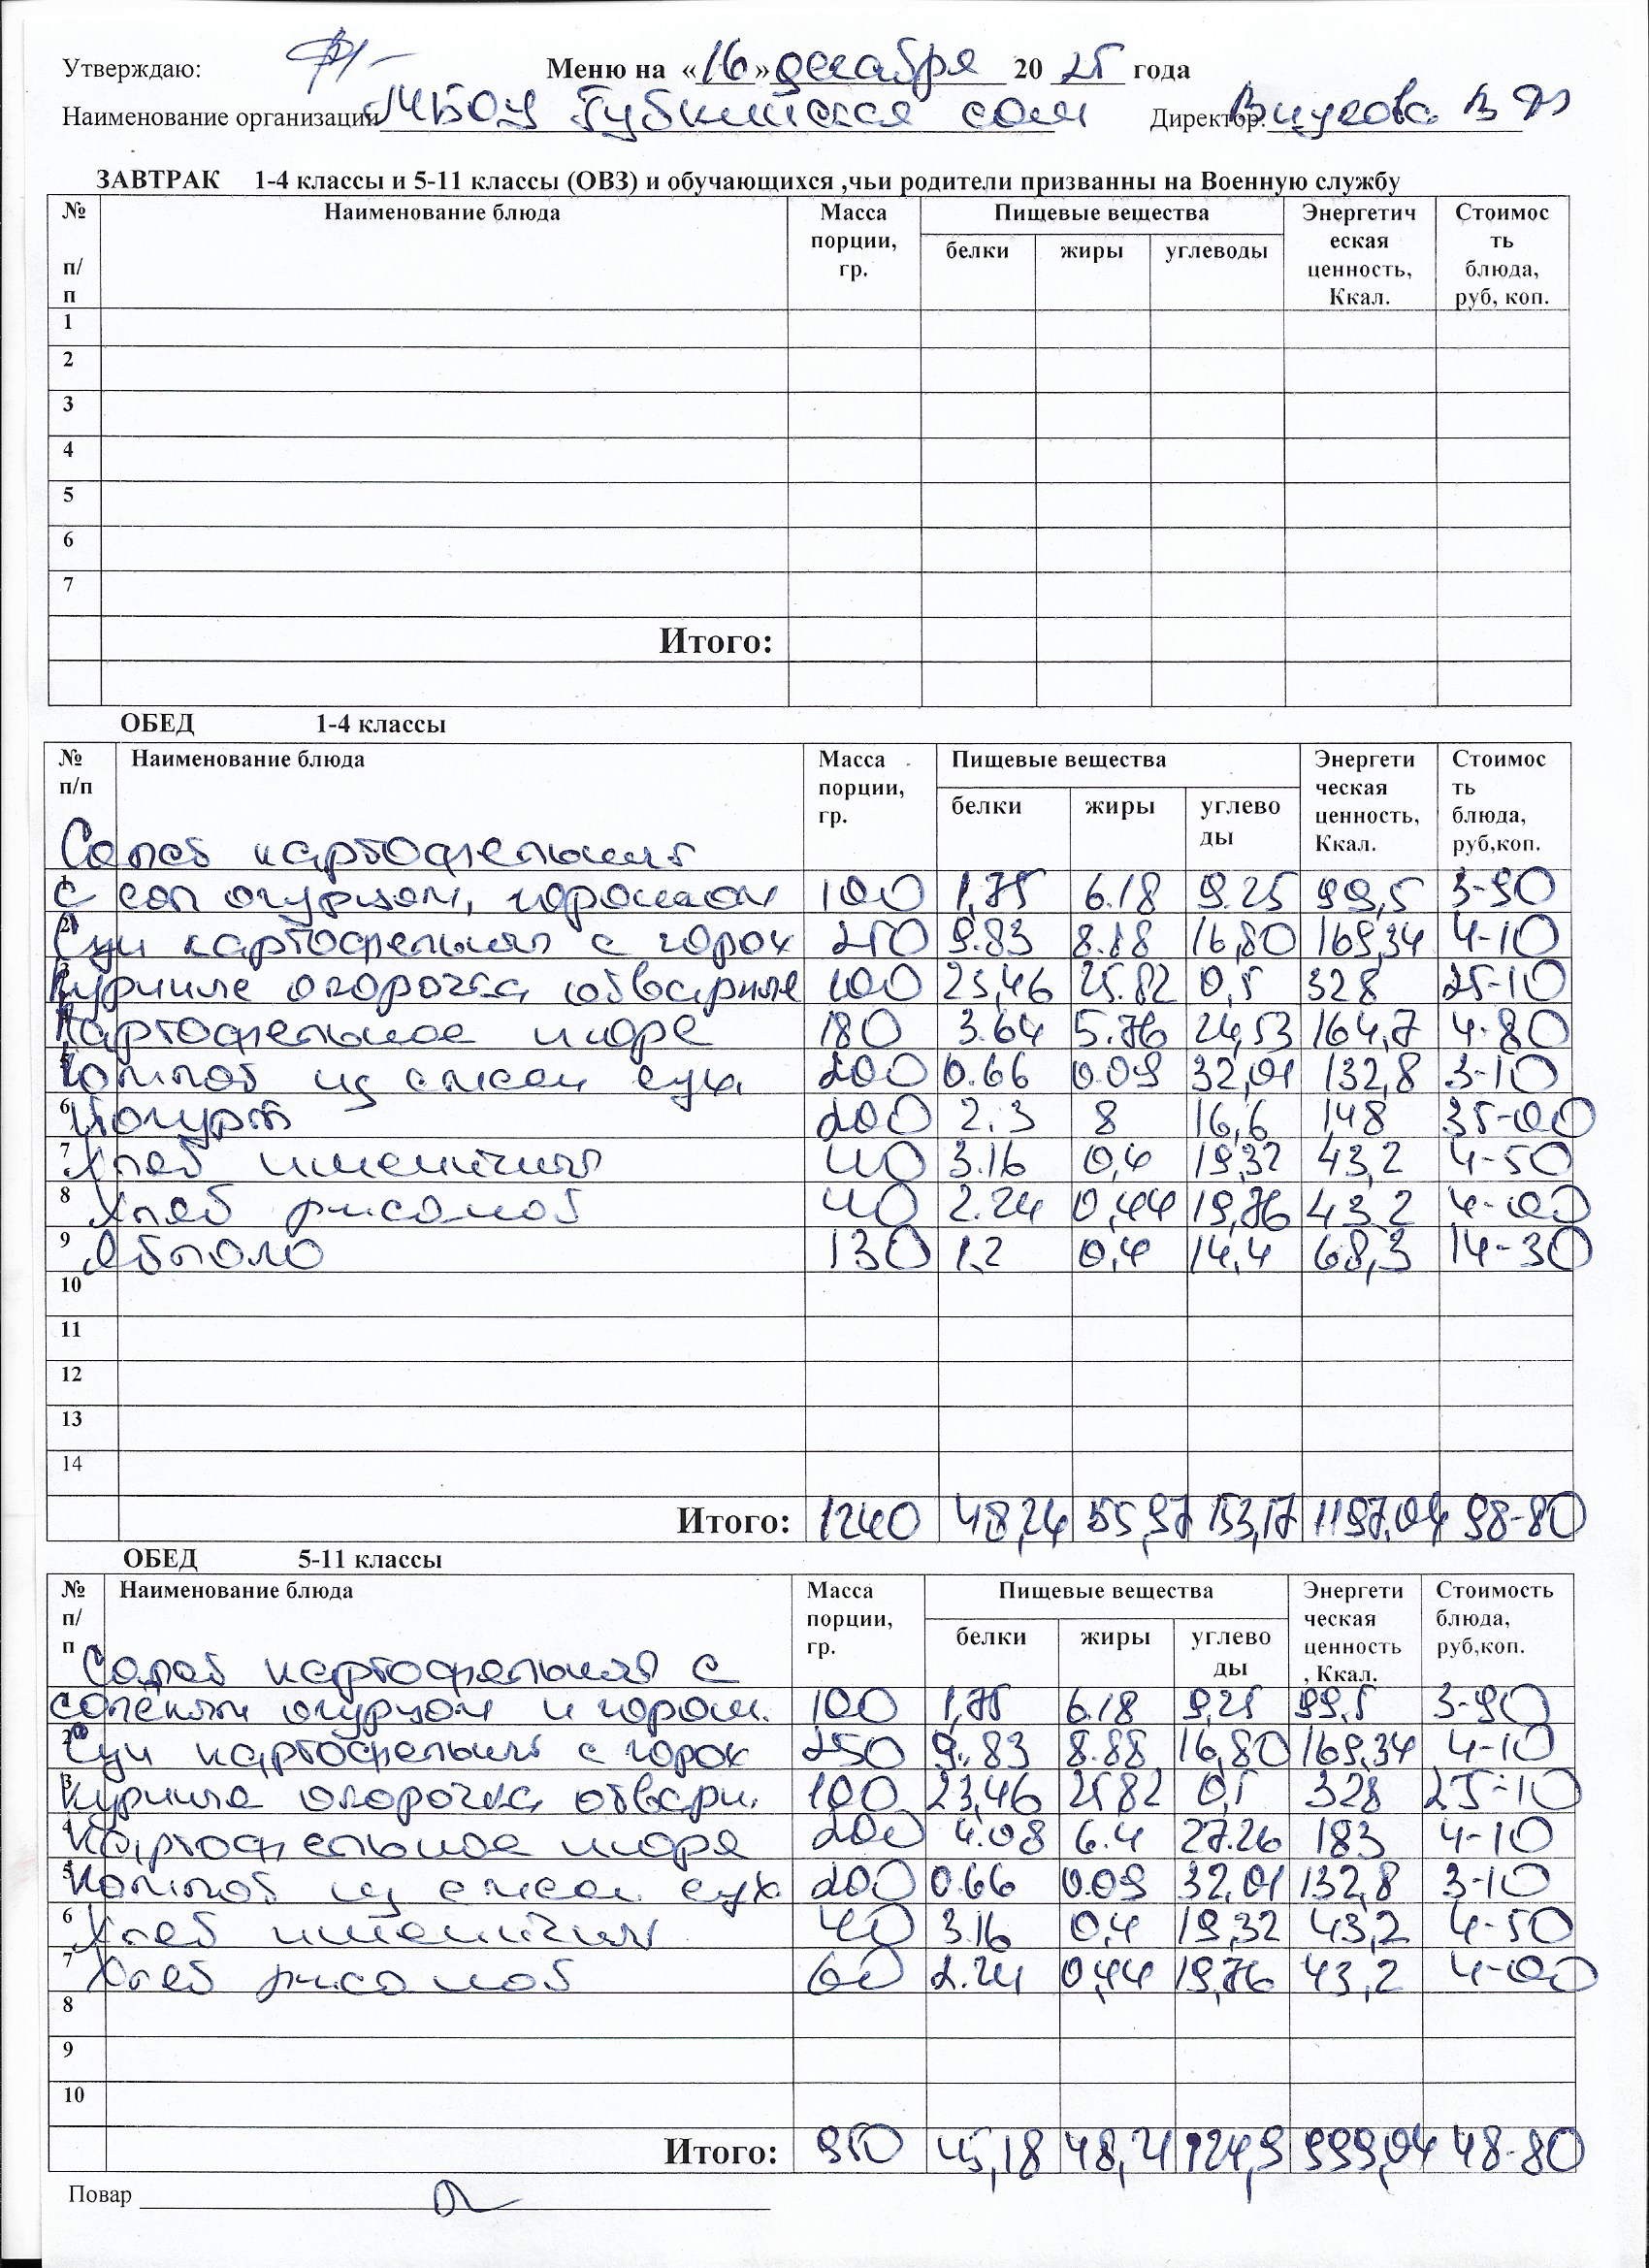 Утверждаю: Меню на «16» декабря 2025 года
Наименование организации МБОУ Губкинская сош Директор:
ЗАВТРАК 1-4 классы и 5-11 классы (ОВЗ) и обучающихся ,чьи родители призванны на Военную службу
№ п/п Наименование блюда Масса порции, гр. Пищевые вещества Энергетическая ценность, Ккал. Стоимость блюда, руб, коп.
белки жиры углеводы
1
2
3
4
5
6
7
Итого:
ОБЕД 1-4 классы
№ п/п Наименование блюда Масса порции, гр. Пищевые вещества Энергетическая ценность, Ккал. Стоимость блюда, руб,коп.
белки жиры углеводы
Салат картофельный
1 с сол огурцом, горошком 100 1,75 6.18 9.25 99,5 3-90
2 Суп картофельный с горох 250 9.83 8.88 16,80 169,34 4-10
3 Курица окорочка отварные 100 23,46 25.82 0,5 328 25-10
4 Картофельное пюре 180 3.64 5.76 24,53 164,7 4-80
5 Компот из смеси сух. 200 0.66 0.09 32,01 132,8 3-10
6 Йогурт 200 2.3 8 16,6 148 35-00
7 Хлеб пшеничный 40 3.16 0,4 19,32 43,2 4-50
8 Хлеб ржаной 40 2.24 0,44 19,76 43,2 4-00
9 Яблоко 130 1,2 0,4 14,4 68,3 14-30
10
11
12
13
14
Итого: 1240 48,24 55,97 153,17 1197,04 98-80
ОБЕД 5-11 классы
№ п/п Наименование блюда Масса порции, гр. Пищевые вещества Энергетическая ценность, Ккал. Стоимость блюда, руб,коп.
белки жиры углеводы
Салат картофельный с
1 солёным огурцом и горош. 100 1,75 6.18 9,25 99,5 3-90
2 Суп картофельный с горох 250 9.83 8.88 16,80 169,34 4-10
3 Курица окорочка отварн. 100 23,46 25,82 0,5 328 25-10
4 Картофельное пюре 200 4.08 6.4 27.26 183 4-10
5 Компот из смеси сух 200 0.66 0.09 32,01 132,8 3-10
6 Хлеб пшеничный 40 3.16 0,4 19,32 43,2 4-50
7 Хлеб ржаной 60 2.24 0,44 19,76 43,2 4-00
8
9
10
Итого: 950 45,18 48,21 124,9 999,04 48-80
Повар